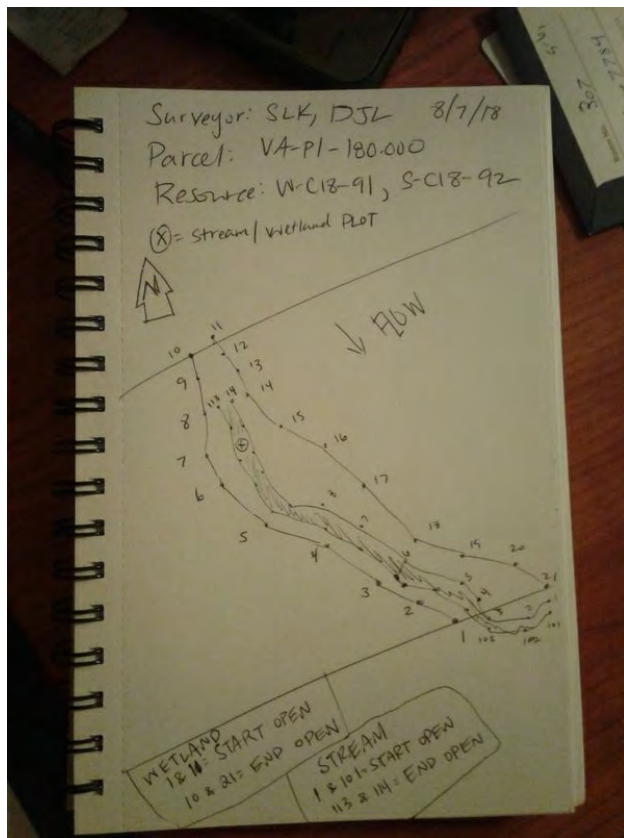 Surveyor: SLK, DJL 8/7/18
Parcel: VA-PI-180.000
Resource: W-C18-91, S-C18-92
X = Stream/Wetland PLOT
N
↓ FLOW
11
10
12
9
13
113
14
14
8
15
16
7
17
6
8
5
7
4
18
6
19
20
3
5
21
2
4
1
3
2
1
103
102
101
WETLAND
1 & 11 = START OPEN
10 & 21 = END OPEN
STREAM
1 & 101 = START OPEN
113 & 114 = END OPEN
307